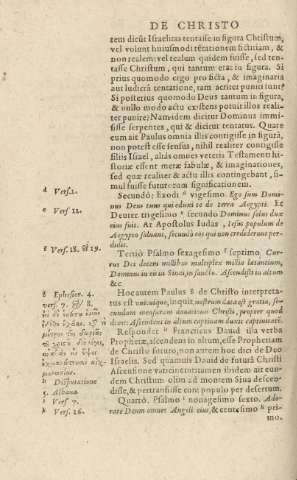 DE CHRISTO
tem dicũt Israelitas tentasse in figura Christum,
vel volunt huiusmodi tẽtationem fictitiam, &
non realem: vel realem quidem fuisse, sed ten-
tasse Christum, qui tantum erat in figura. Si
prius quomodo ergo pro ficta, & imaginaria
aut ludicra tentatione, tam acriter puniti sunt?
Si posterius quomodo Deus tantum in figura,
& nullo modo actu existens potuit illos reali-
ter punire? Nam videm dicitur Dominus immi-
sisse serpentes, qui & dicitur tentatus. Quare
cum ait Paulus omnia illis contigisse in figura,
non potest esse sensus, nihil realiter contigisse
filiis Israel, aliàs omnes veteris Testamenti hi-
storiæ essent meræ fabulæ, & imaginationes,
sed quæ realiter & actu illis contingebant, si-
mul fuisse futurorum significationem.
d Vers. 2.
Secundò; Exodi d vigesimo Ego sum Domi-
nus Deus tuus qui eduxi te de terra Aegypti. Et
e Vers 12.
Deuter. trigesimo e secundo Dominus solus dux
eius fuit. At Apostolus Iudas, Iesus populum de
Aegypto saluans, secundò eos qui non crediderunt per-
didit.
f Vers. 18. & 19.
Tertiò Psalmo sexagesimo f septimo Cur-
rus Dei decem millibus multiplex millia lætantium,
Dominus in eis in Sina, in sancto. Ascendisti in altum
& c.
g Ephes. 4.
vers. 7. & 8.
Hoc autem Paulus g de Christo interpreta-
tus est unicuique, inquit, nostrum data est gratia, se-
cundum mensuram donationis Christi, propter quod
dicit: Ascendens in altum captiuam duxit captiuitatem.
h Disputatione
Respondet h Franciscus Dauid illa verba
Prophetæ, ascendens in altum, esse Prophetiam
de Christo futuro, non autem hoc dici de Deo
Israelis. Sed quamuis Dauid de futura Christi
Ascensione vaticinetur, tamen ibidem ait eun-
dem Christum olim ad montem Sina descen-
disse, & pertransisse cum populo per desertum.
i Vers. 7.
k Vers. 26.
Quartò. Psalmo i nonagesimo sexto. Ado-
rate Deum omnes Angeli eius, & centesimo k pri-
mo.